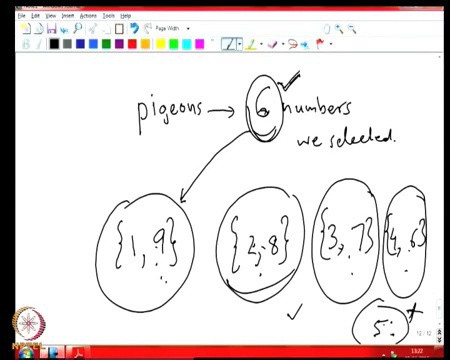 File Edit View Insert Actions Tools Help
Page Width
B
pigeons → 6 numbers
we selected.
{1, 9} {2, 8} {3, 7} {4, 6}
5
12/12
13:22